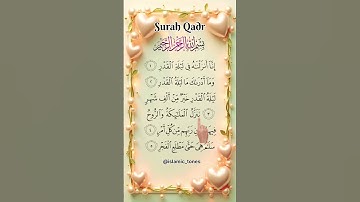 Surah Qadr
بِسْمِ اللَّهِ الرَّحْمَٰنِ الرَّحِيمِ
إِنَّا أَنزَلْنَٰهُ فِى لَيْلَةِ ٱلْقَدْرِ ١
وَمَآ أَدْرَىٰكَ مَا لَيْلَةُ ٱلْقَدْرِ ٢
لَيْلَةُ ٱلْقَدْرِ خَيْرٌ مِّنْ أَلْفِ شَهْرٍ
٣ تَنَزَّلُ ٱلْمَلَٰٓئِكَةُ وَٱلرُّوحُ
فِيهَا رَبِّهِم مِّن كُلِّ أَمْرٍ ٤
سَلَٰمٌ هِىَ حَتَّىٰ مَطْلَعِ ٱلْفَجْرِ ٥
@islamic_tones